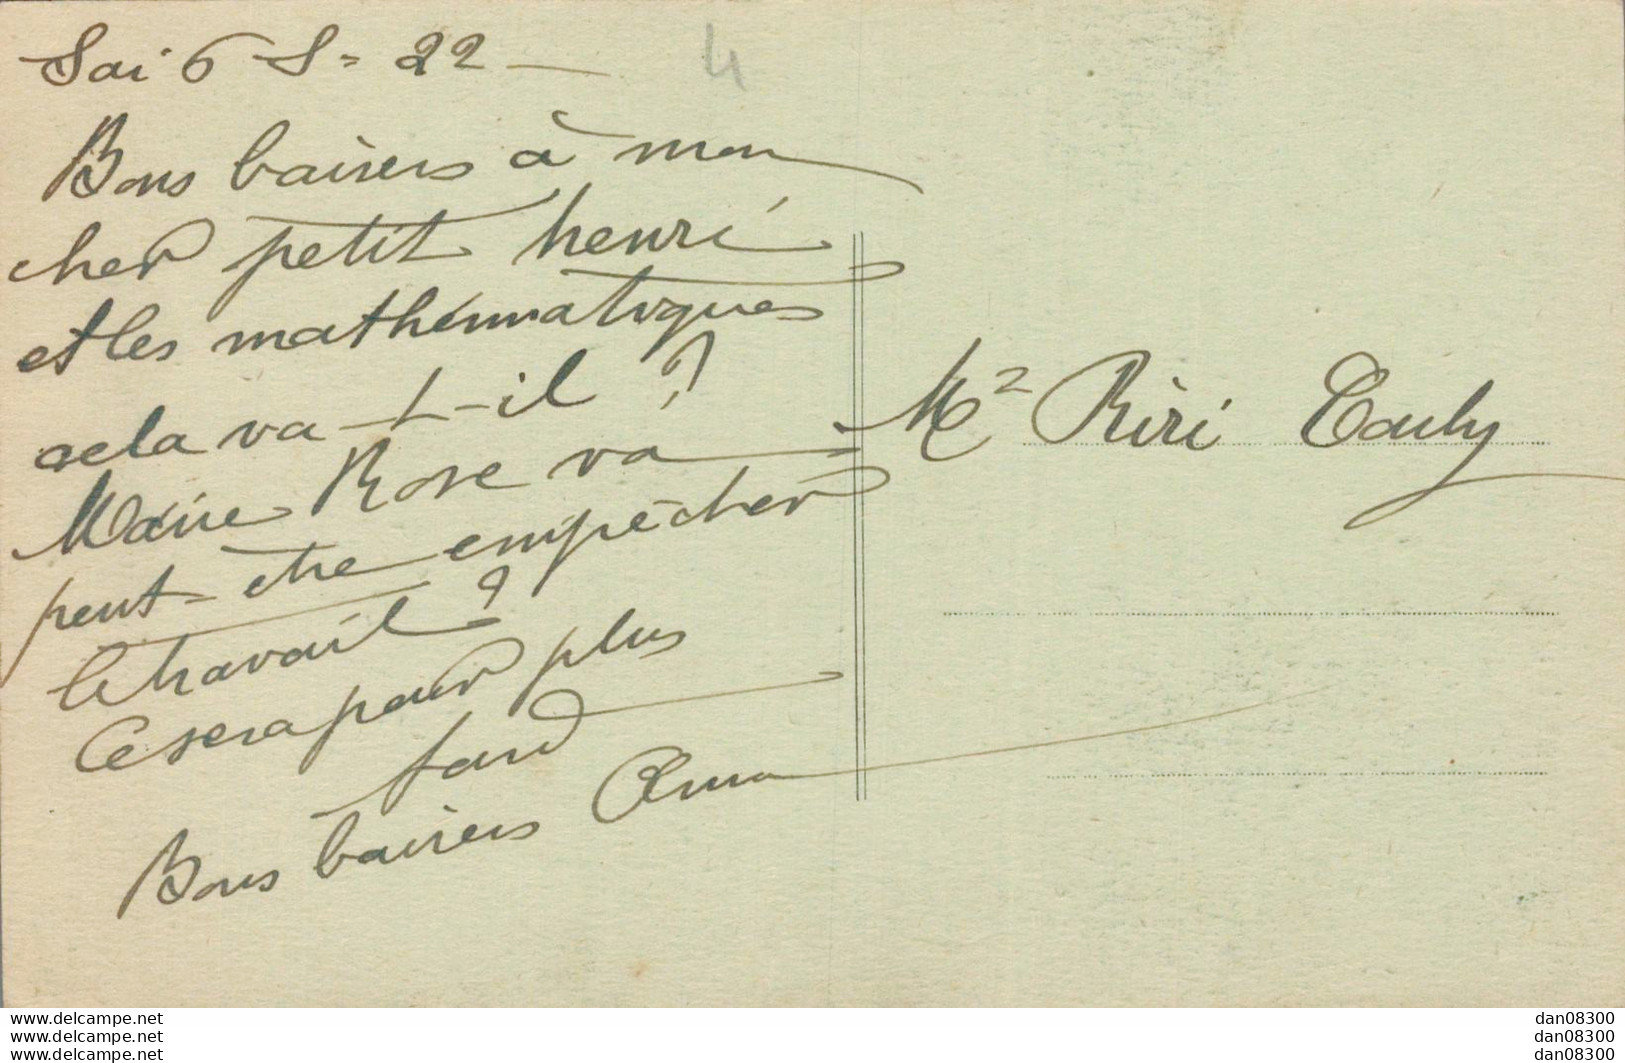 Sai 6 S= 22 —
4
Bons baisers à mon
cher petit henri
et les mathématiques
cela va-t-il ?
Marie Rose va
peut-être empêcher
le travail ?
Ce sera pour plus
tard
Bons baisers Anna
Mr Riri
www.delcampe.net
www.delcampe.net
www.delcampe.net
dan08300
dan08300
dan08300